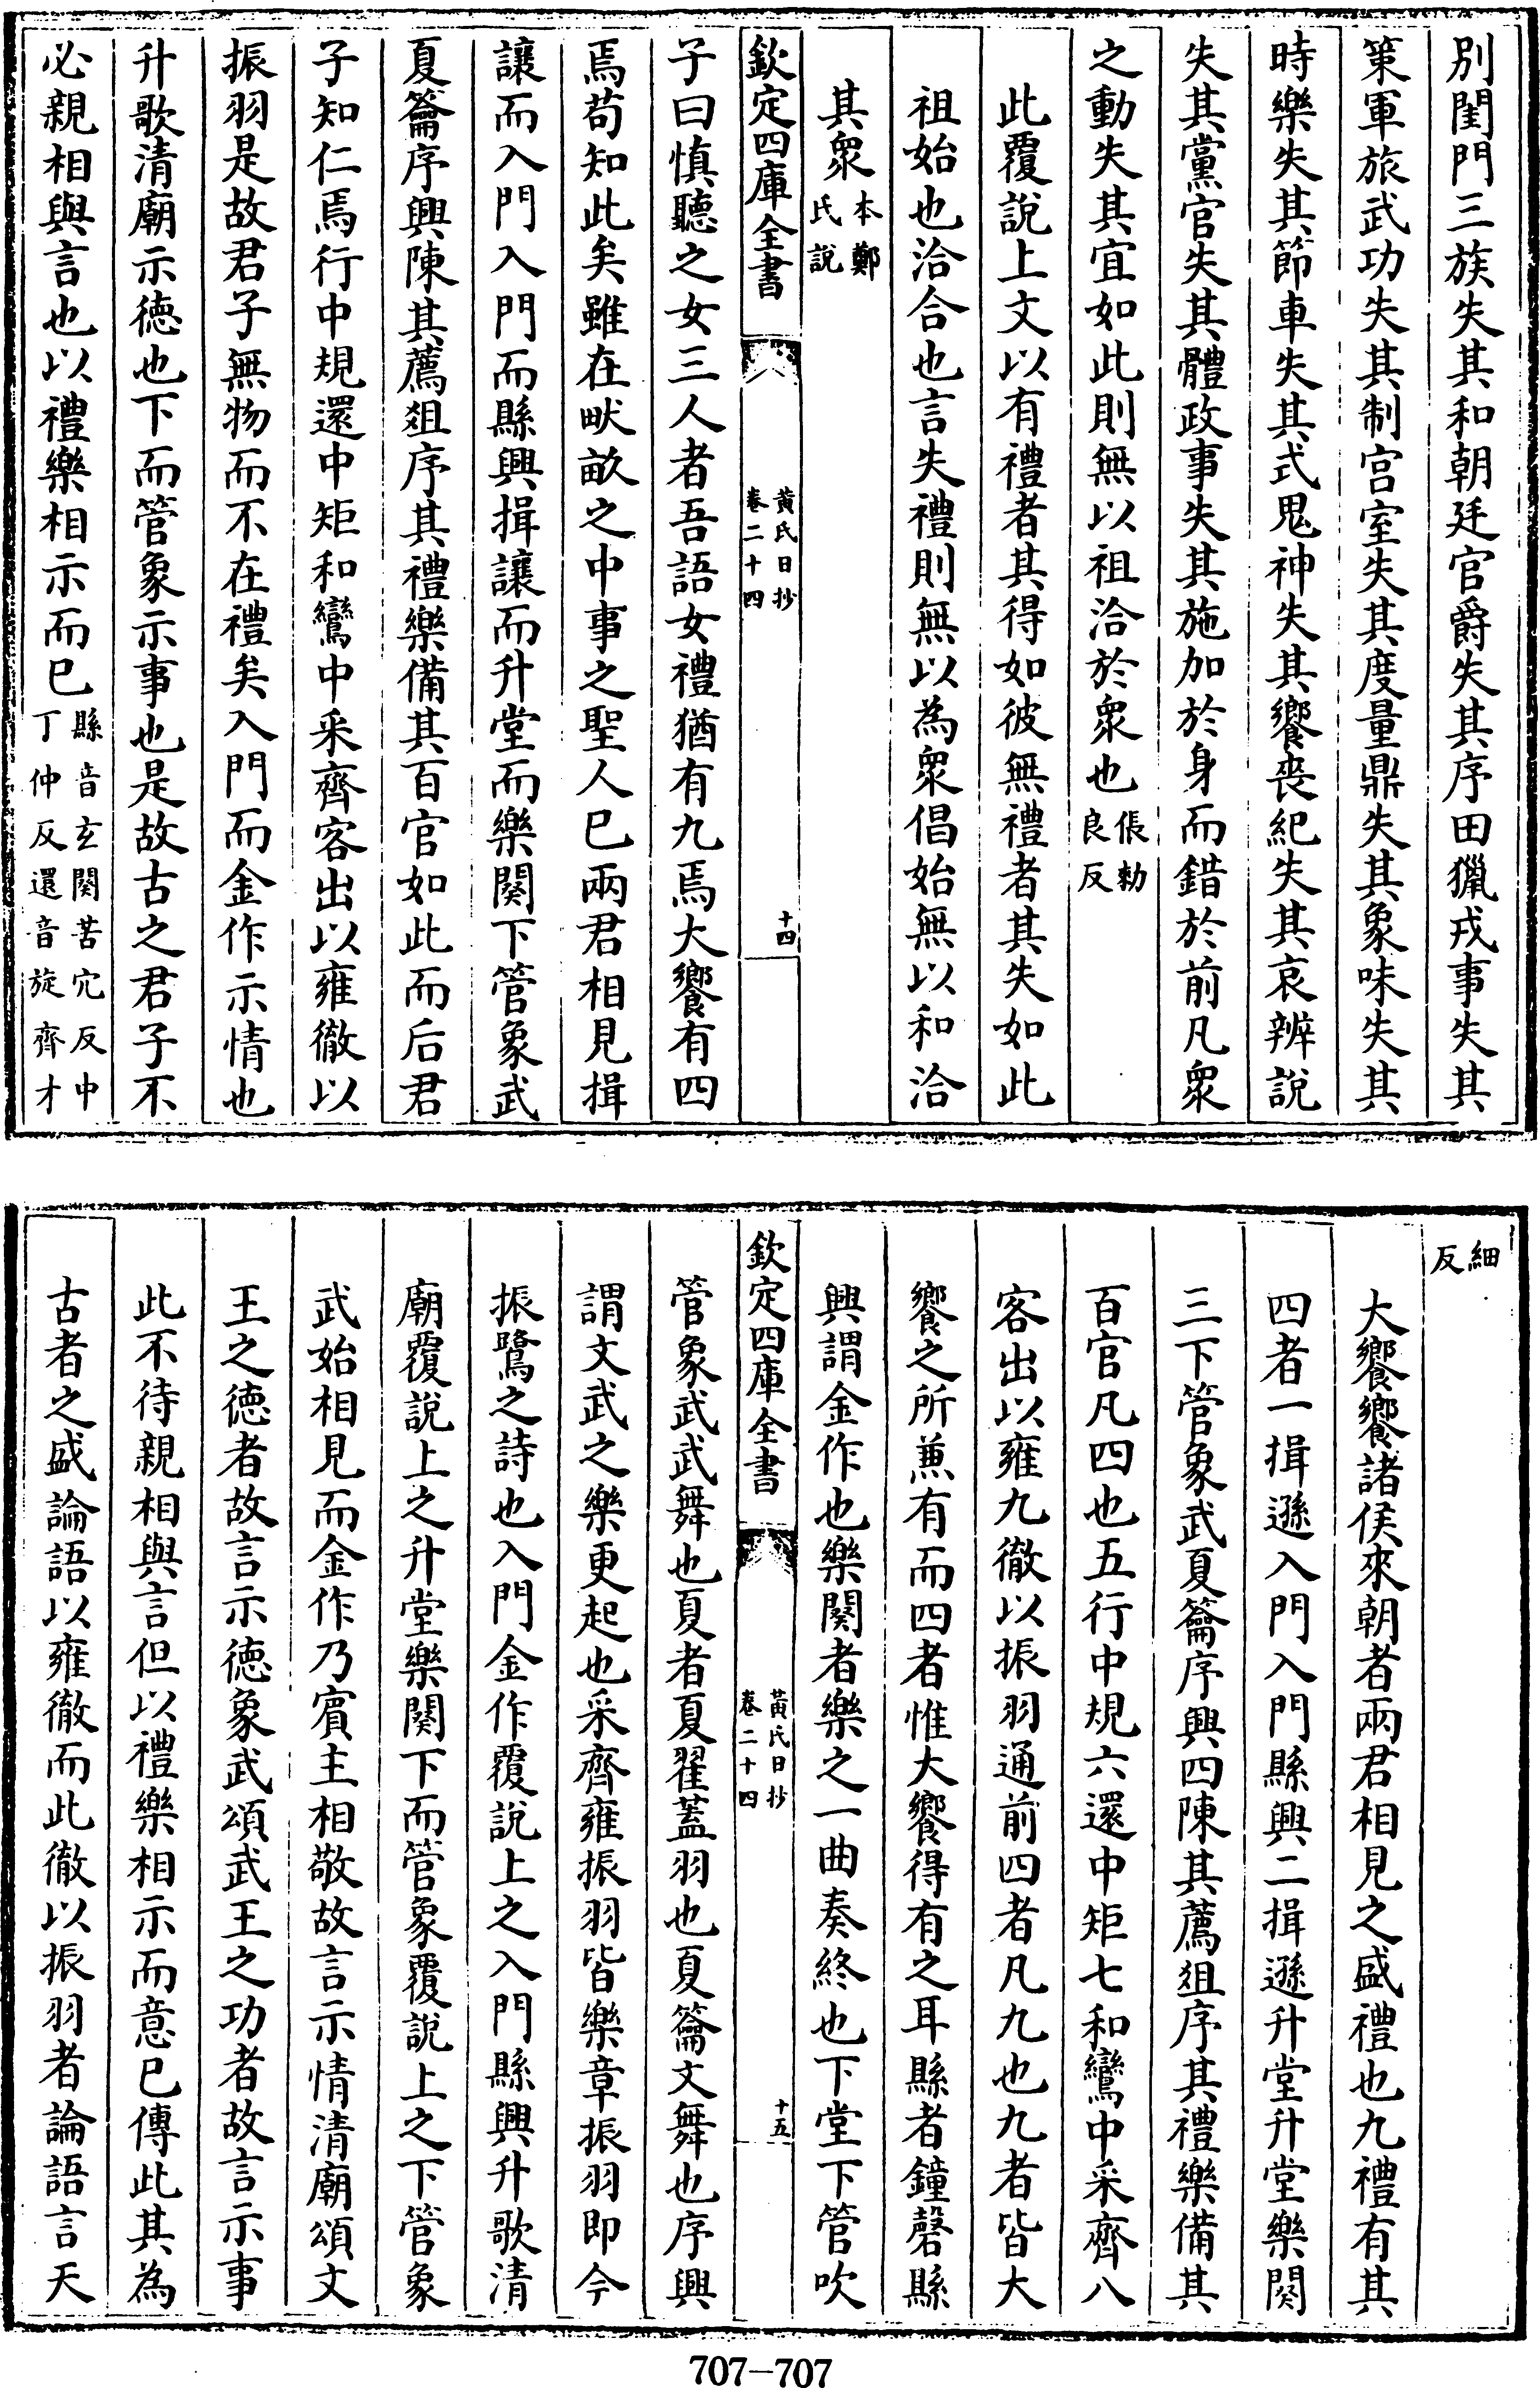 別閨門三族失其和朝廷官爵失其序田獵戎事失其
策軍旅武功失其制宫室失其度量鼎失其象味失其
時樂失其節車失其式鬼神失其饗喪紀失其哀辨說
失其黨官失其體政事失其施加於身而錯於前凡衆
之動失其宜如此則無以祖洽於衆也倀勅良反
此覆說上文以有禮者其得如彼無禮者其失如此
祖始也洽合也言失禮則無以為衆倡始無以和洽
其衆本鄭氏說
欽定四庫全書
黃氏日抄
卷二十四
十四
子曰慎聽之女三人者吾語女禮猶有九焉大饗有四
焉苟知此矣雖在畎畝之中事之聖人已兩君相見揖
讓而入門入門而縣興揖讓而升堂而樂闋下管象武
夏籥序興陳其薦俎序其禮樂備其百官如此而后君
子知仁焉行中規還中矩和鸞中采齊客出以雍徹以
振羽是故君子無物而不在禮矣入門而金作示情也
升歌清廟示德也下而管象示事也是故古之君子不
必親相與言也以禮樂相示而已縣音玄闋苦穴反中丁仲反還音旋齊才
細反
大饗饗諸侯來朝者兩君相見之盛禮也九禮有其
四者一揖遜入門入門縣興二揖遜升堂升堂樂闋
三下管象武夏籥序興四陳其薦俎序其禮樂備其
百官凡四也五行中規六還中矩七和鸞中采齊八
客出以雍九徹以振羽通前四者凡九也九者皆大
饗之所兼有而四者惟大饗得有之耳縣者鐘磬縣
興謂金作也樂闋者樂之一曲奏終也下堂下管吹
欽定四庫全書
黃氏日抄
卷二十四
十五
管象武武舞也夏者夏翟蓋羽也夏籥文舞也序興
謂文武之樂更起也采齊雍振羽皆樂章振羽即今
振鷺之詩也入門金作覆說上之入門縣興升歌清
廟覆說上之升堂樂闋下而管象覆說上之下管象
武始相見而金作乃賓主相敬故言示情清廟頌文
王之德者故言示德象武頌武王之功者故言示事
此不待親相與言但以禮樂相示而意已傳此其為
古者之盛論語以雍徹而此徹以振羽者論語言天
707-707